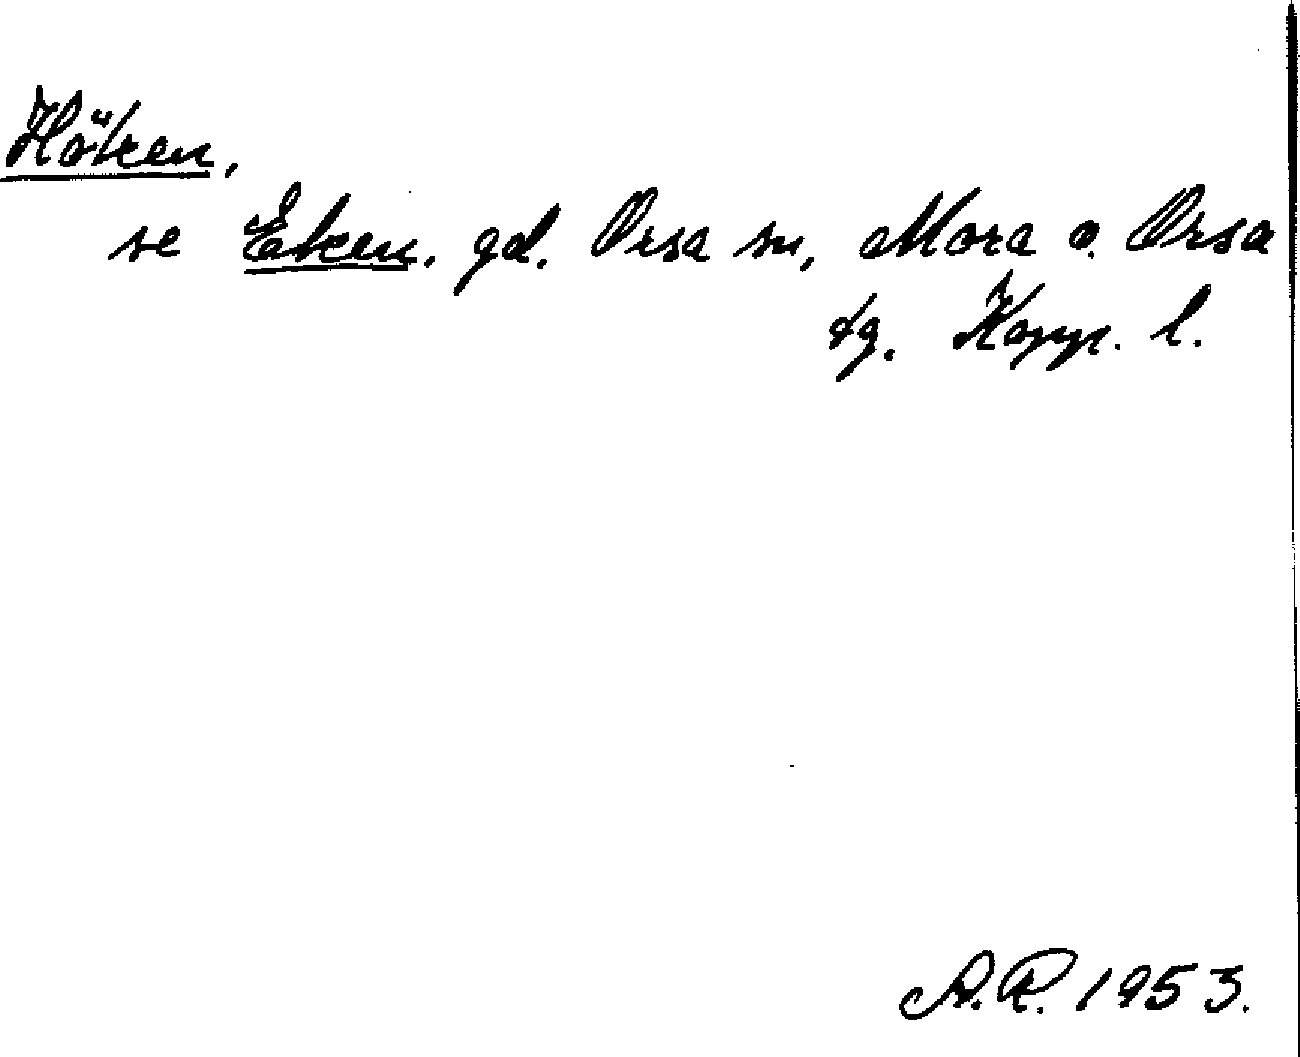 Höken,
se Eken, gd. Orsa sn, Mora o. Orsa
tg. Kopp. l.
A.R. 1953.